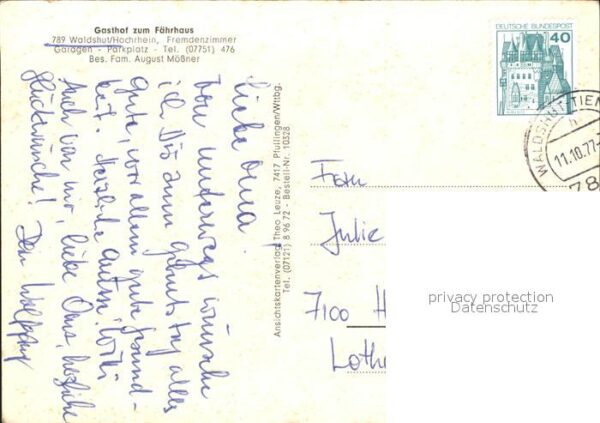 Gasthof zum Fährhaus
789 Waldshut/Hochrhein, Fremdenzimmer
Garagen - Parkplatz - Tel. (07751) 476
Bes. Fam. August Mößner
Liebe Oma!
Von unterwegs wünsche
ich Dir zum Geburtstag alles
Gute, vor allem gute Gesund-
heit. Herzliche Grüße,
Auch von mir, liebe Oma, herzliche
Glückwünsche! Dein Wolfgang
Ansichtskartenverlag Theo Leuze, 7417 Pfullingen/Wttbg.
Tel. (07121) 8 96 72 - Bestell-Nr. 10328
DEUTSCHE BUNDESPOST
40
WALDSHUT-TIEN
h
11.10.77-
78
Frau
Julie
7100 H
Loth
privacy protection
Datenschutz